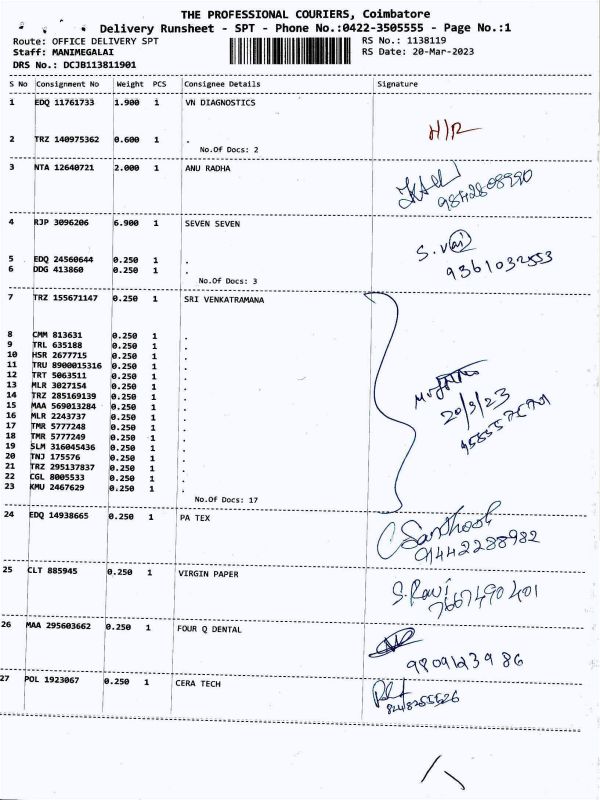 THE PROFESSIONAL COURIERS, Coimbatore
Delivery Runsheet - SPT - Phone No.:0422-3505555 - Page No.:1
Route: OFFICE DELIVERY SPT
RS No.: 1138119
Staff: MANIMEGALAI
RS Date: 20-Mar-2023
DRS No.: DCJB113811901
S No Consignment No Weight PCS Consignee Details Signature
1 EDQ 11761733 1.900 1 VN DIAGNOSTICS
H/R
2 TRZ 140975362 0.600 1 .
No.Of Docs: 2
3 NTA 12640721 2.000 1 ANU RADHA
9842808990
4 RJP 3096206 6.900 1 SEVEN SEVEN
5 EDQ 24560644 0.250 1 .
6 DDG 413860 0.250 1 .
9361032553
No.Of Docs: 3
7 TRZ 155671147 0.250 1 SRI VENKATRAMANA
8 CMM 813631 0.250 1 .
9 TRL 635188 0.250 1 .
10 HSR 2677715 0.250 1 .
11 TRU 8900015316 0.250 1 .
12 TRT 5063511 0.250 1 .
13 MLR 3027154 0.250 1 .
14 TRZ 285169139 0.250 1 .
15 MAA 569013284 0.250 1 .
16 MLR 2243737 0.250 1 .
20/3/23
17 TMR 5777248 0.250 1 .
18 TMR 5777249 0.250 1 .
19 SLM 316045436 0.250 1 .
20 TNJ 175576 0.250 1 .
21 TRZ 295137837 0.250 1 .
22 CGL 8005533 0.250 1 .
23 KMU 2467629 0.250 1 .
No.Of Docs: 17
24 EDQ 14938665 0.250 1 PA TEX
Santhosh
9442288982
25 CLT 885945 0.250 1 VIRGIN PAPER
S. Ravi
7667490401
26 MAA 295603662 0.250 1 FOUR Q DENTAL
9809123986
27 POL 1923067 0.250 1 CERA TECH